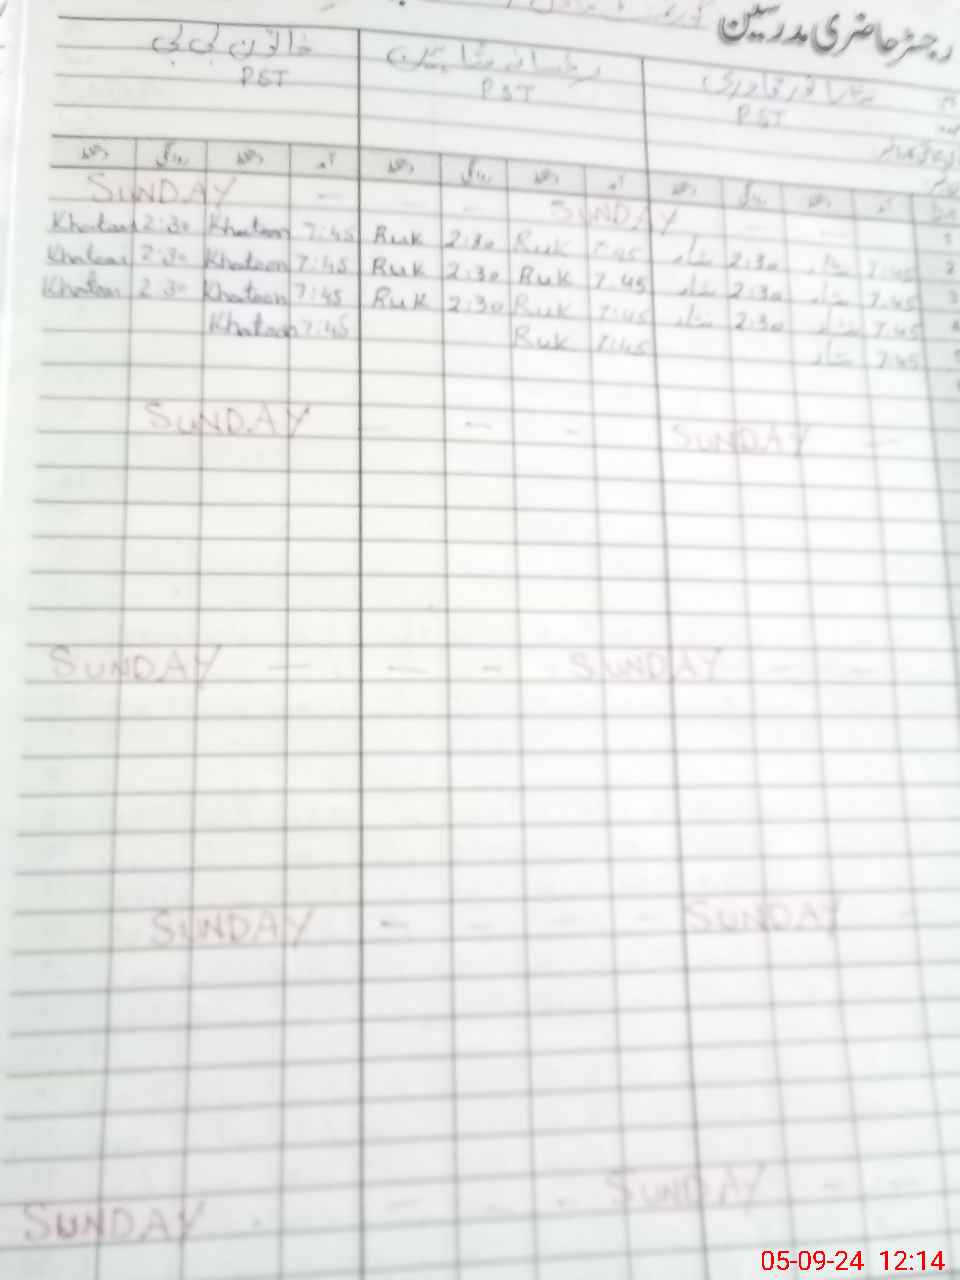 رجسٹر حاضری مدرسین
خاتون بی بی
PST PST PST
دستخط روانگی دستخط آمد دستخط روانگی دستخط آمد دستخط روانگی دستخط آمد
SUNDAY — — — SUNDAY — — 1
Khatoon 2:30 Khatoon 7:45 Ruk 2:30 Ruk 7:45 2:30 7:45 2
Khatoon 2:30 Khatoon 7:45 Ruk 2:30 Ruk 7:45 2:30 7:45 3
Khatoon 2:30 Khatoon 7:45 Ruk 2:30 Ruk 7:45 2:30 7:45 4
Khatoon 7:45 Ruk 7:45 7:45 5
SUNDAY — — — SUNDAY —
SUNDAY — — — SUNDAY — —
SUNDAY — — — — SUNDAY —
SUNDAY - — - - SUNDAY — —
05-09-24 12:14